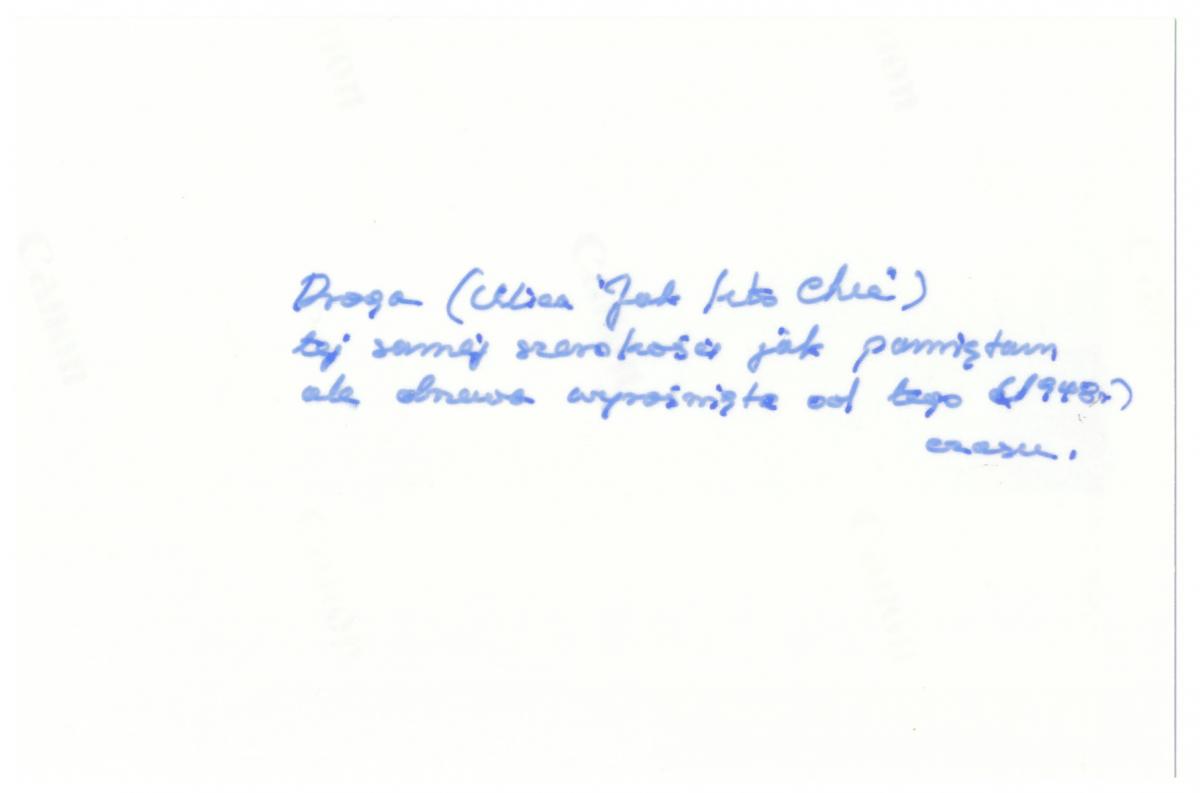 Droga (Ulica "Jak kto Chce")
tej samej szerokości jak pamiętam
ale drzewa wyrośnięte od tego (1940r)
czasu.
Canon